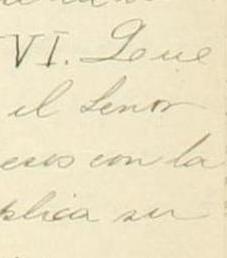 VI. Que
el Señor
eses con la
plica su